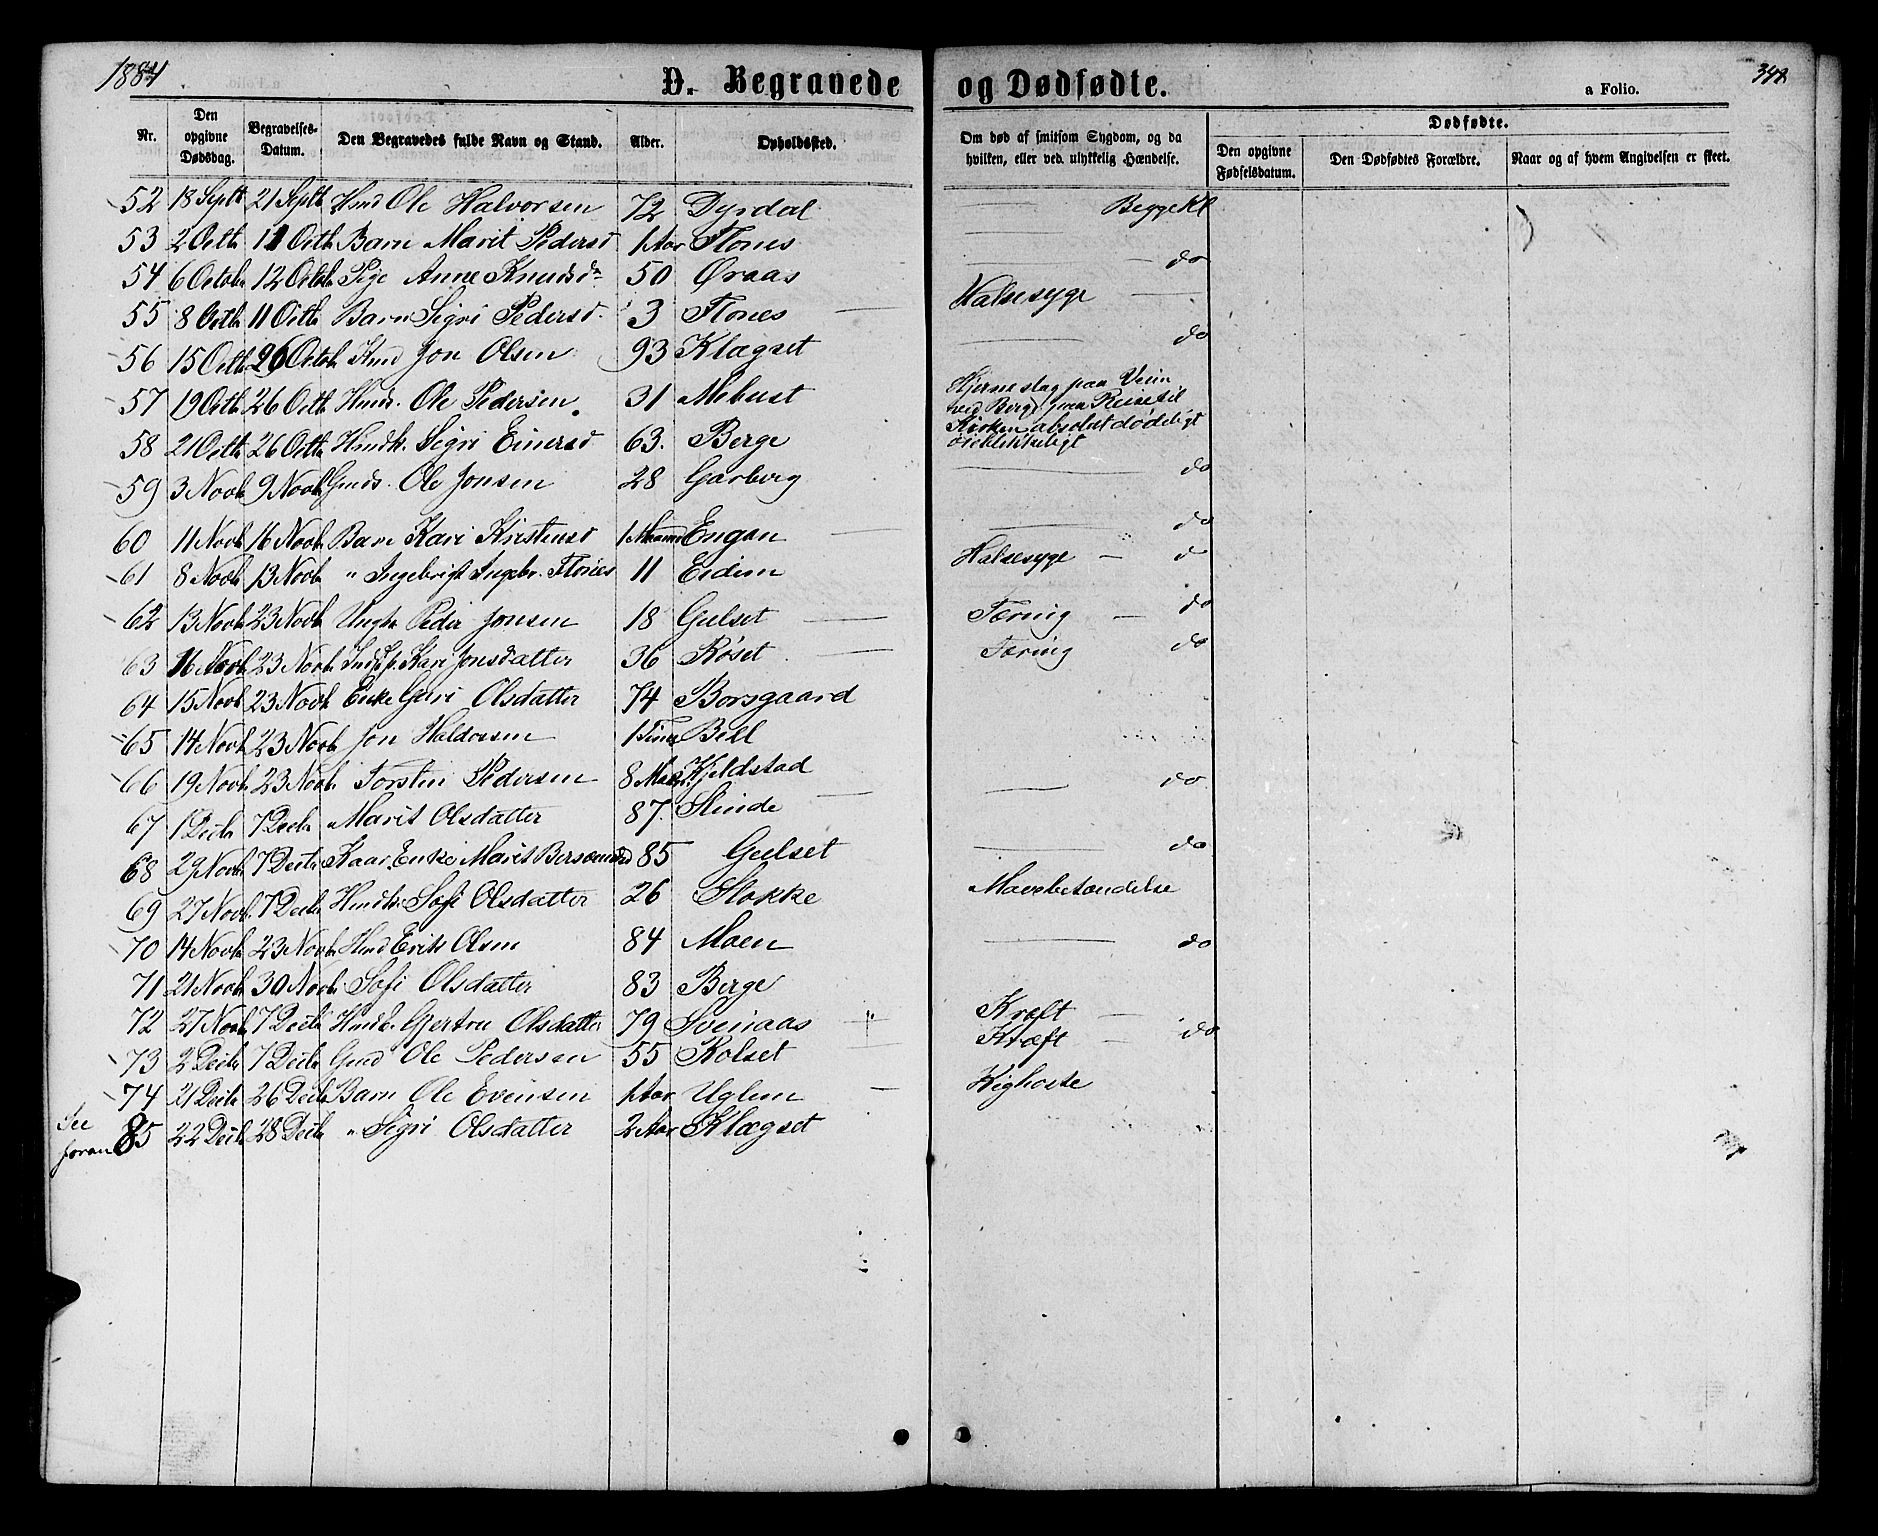 1884
D. Begravede og Dødfødte.
a Folio.
348
Nr.
Den opgivne Dødsdag.
Begravelses-Datum.
Den Begravedes fulde Navn og Stand.
Alder.
Opholdssted.
Om død af smitsom Sygdom, og da hvilken, eller ved ulykkelig Hændelse.
Dødfødte.
Den opgivne Fødselsdatum.
Den Dødfødtes Forældre.
Naar og af hvem Angivelsen er skeet.
52 18 Septb 21 Septb Kmd Ole Halvorsen 72 Dyrdal Begge Kl
53 2 Octb 11 Octb Barn Marit Pedersd 1 Aar Flones
54 6 Octob 12 Octob Pige Anne Knudsd 50 Øraas do
55 8 Octb 11 Octb Barn Sigri Pedersd 3 Flones Halsesyge
56 15 Octb 26 Octob Kmd Jon Olsen 93 Klægset do
57 19 Octb 26 Octb Hmd. Ole Pedersen 31 Mebust Hjerneslag paa Veien
ved Berge paa Reise til
58 21 Octb 26 Octb Hmdk. Sigri Einersd 63. Berge Kirken absolut dødeligt
øieblikkeligt
59 3 Novb 9 Novb Gmds. Ole Jonsen 28 Garberg do
60 11 Novb 16 Novb Barn Kari Kristensd 1 Maaned Engan do
61 8 Novb 13 Novb " Ingebrigt Ingebr. Flones 11 Eidem Halsesyge do
62 13 Novb 23 Novb Ungk Peder Jonsen 18 Gulset Tæring do
63 16 Novb 23 Novb Inds.p. Kari Jonsdatter 36 Røset Tæring do
64 15 Novb 23 Novb Enke Guri Olsdatter 74 Borsgaard
65 14 Novb 23 Novb Jon Haldorsen 1 Time Bell
66 19 Novb 23 Novb Torsten Pedersen 8 Maan Kjeldstad do
67 1 Decb 7 Decb " Marit Olsdatter 87. Slinde
68 29 Novb 7 Decb Kaar. Enke Marit Bersvendsd 85 Gulset do
69 27 Novb 7 Decb Hmdk. Sofi Olsdatter 26 Stokke Mavebetændelse
70 14 Novb 23 Novb Kmd Erik Olsen 84 Moen do
71 21 Novb 30 Novb Sofi Olsdatter 83 Berge
72 27 Novb 7 Decb Hmdk. Gjertru Olsdatter 79 Sveinaas " Kræft
73 2 Decb 7 Decb Gmd Ole Pedersen 55 Rolset Kræft do
74 21 Decb 26 Decb Barn Ole Evensen 1 Aar Uglem Kighoste
See foran 85 22 Decb 28 Decb " Sigri Olsdatter 2 Aar Klægset